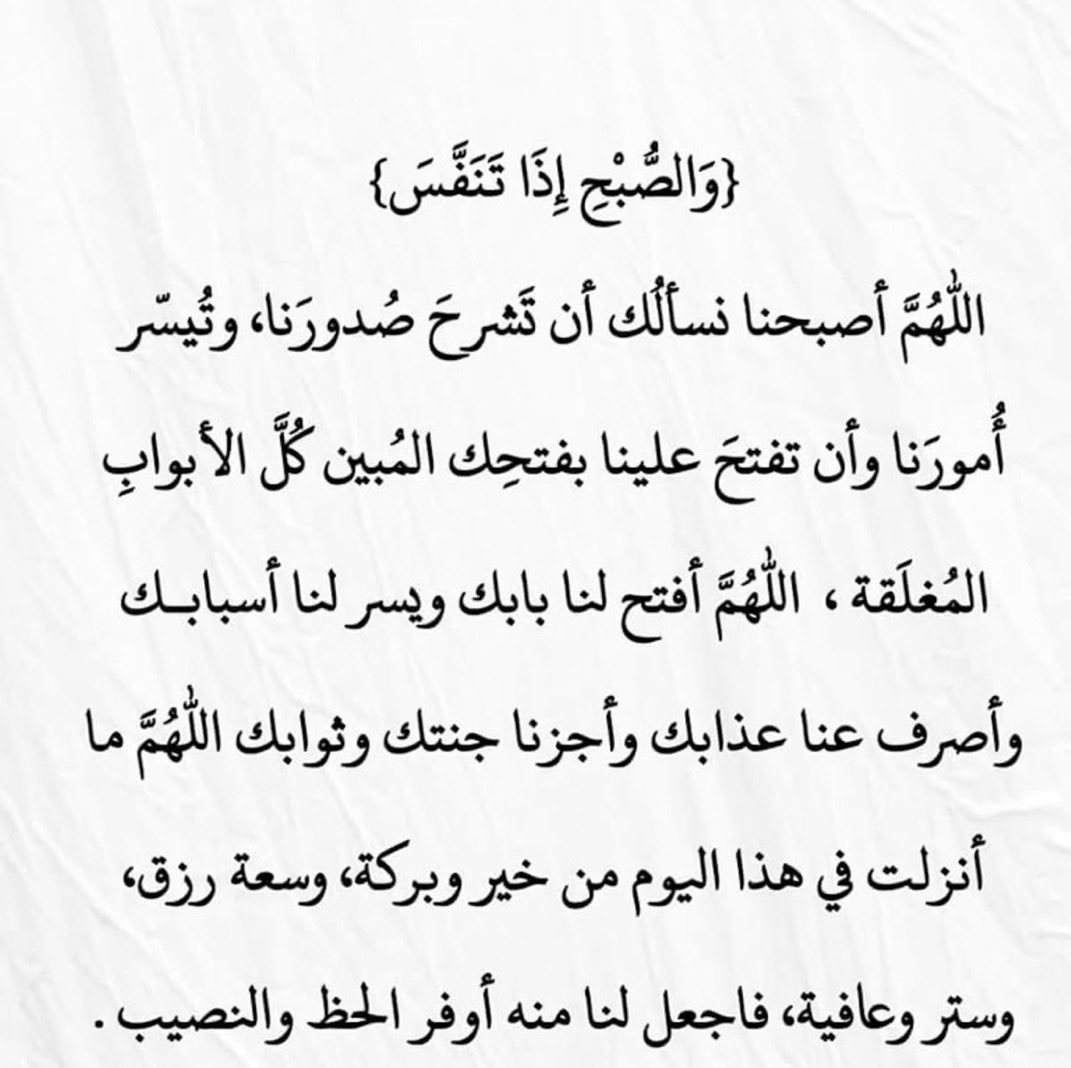 {وَالصُّبْحِ إِذَا تَنَفَّسَ}
اللهُمَّ أصبحنا نسألُك أن تَشرحَ صُدورَنا، وتُيسّر
أُمورَنا وأن تفتحَ علينا بفتحِك المُبين كُلَّ الأبوابِ
المُغلَقة ، اللهُمَّ أفتح لنا بابك ويسر لنا أسبابـك
وأصرف عنا عذابك وأجزنا جنتك وثوابك اللهُمَّ ما
أنزلت في هذا اليوم من خير وبركة، وسعة رزق،
وستر وعافية، فاجعل لنا منه أوفر الحظ والنصيب .